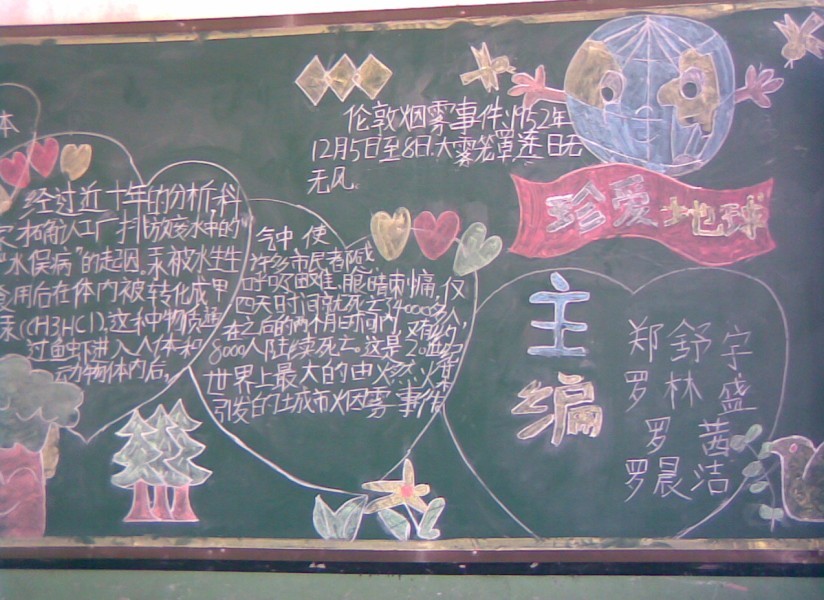 本
伦敦烟雾事件,1952年
12月5日至8日,大雾笼罩逐日无
无风。
珍爱地球
经过近十年的分析,科
确认工厂排放废水中的
“水俣病”的起因.汞被水生生
食用后在体内被转化成甲
汞(CH3HCl),这种物质通
过鱼虾进入人体和
动物体内后,
气中,使
许多市民都喊
呼吸困难,眼睛刺痛,仅
四天时间就死亡4000多人,
在之后的两个月时间内,又有约
8000人陆续死亡。这是20世纪
世界上最大的由燃煤
引发的城市烟雾事件
主编
郑舒宇
罗林盛
罗茜
罗晨洁